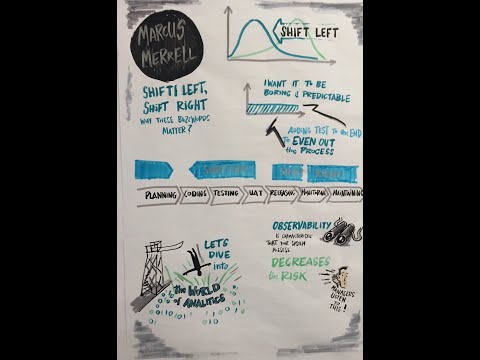 MARCUS
MERRELL
SHIFT LEFT
SHIFT LEFT,
SHIFT RIGHT
WHY THESE BUZZWORDS
MATTER?
I WANT IT TO BE
BORING & PREDICTABLE
ADDING TEST TO the END
to EVEN OUT
the PROCESS
PLANNING CODING TESTING UAT RELEASING MONITORING MAINTAINING
LETS
DIVE
into
the WORLD
of ANALITICS
OBSERVABILITY
IS CHARACTERISTIC
THAT THE
DECREASES
the RISK
MANAGERS
LISTEN TO
THIS!